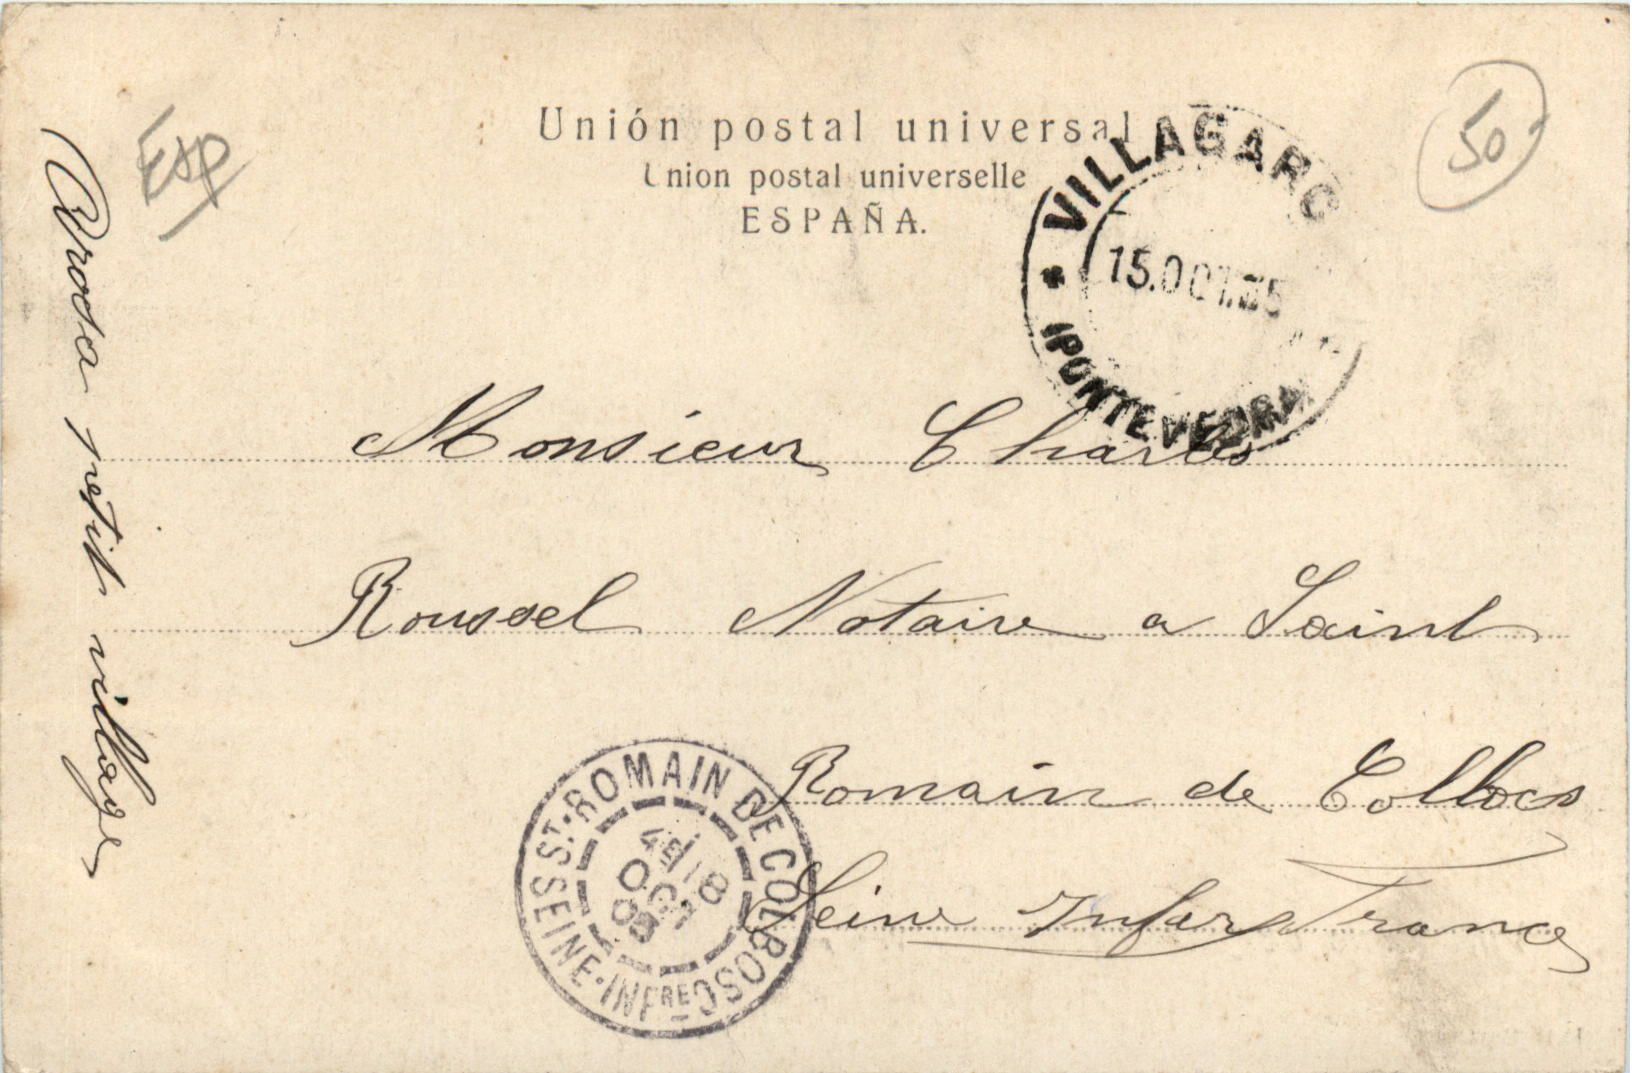 Unión postal universal
Union postal universelle
ESPAÑA.
Esp
50
VILLAGARC
15.OCT.05
(PONTEVEDRA)
Monsieur Charles
Roussel Notaire a Saint
Romain de Colbocs
Seine Infer France
Arosa petit village
ST. ROMAIN DE COLBOSC
SEINE-INFRE
18
OCT
05